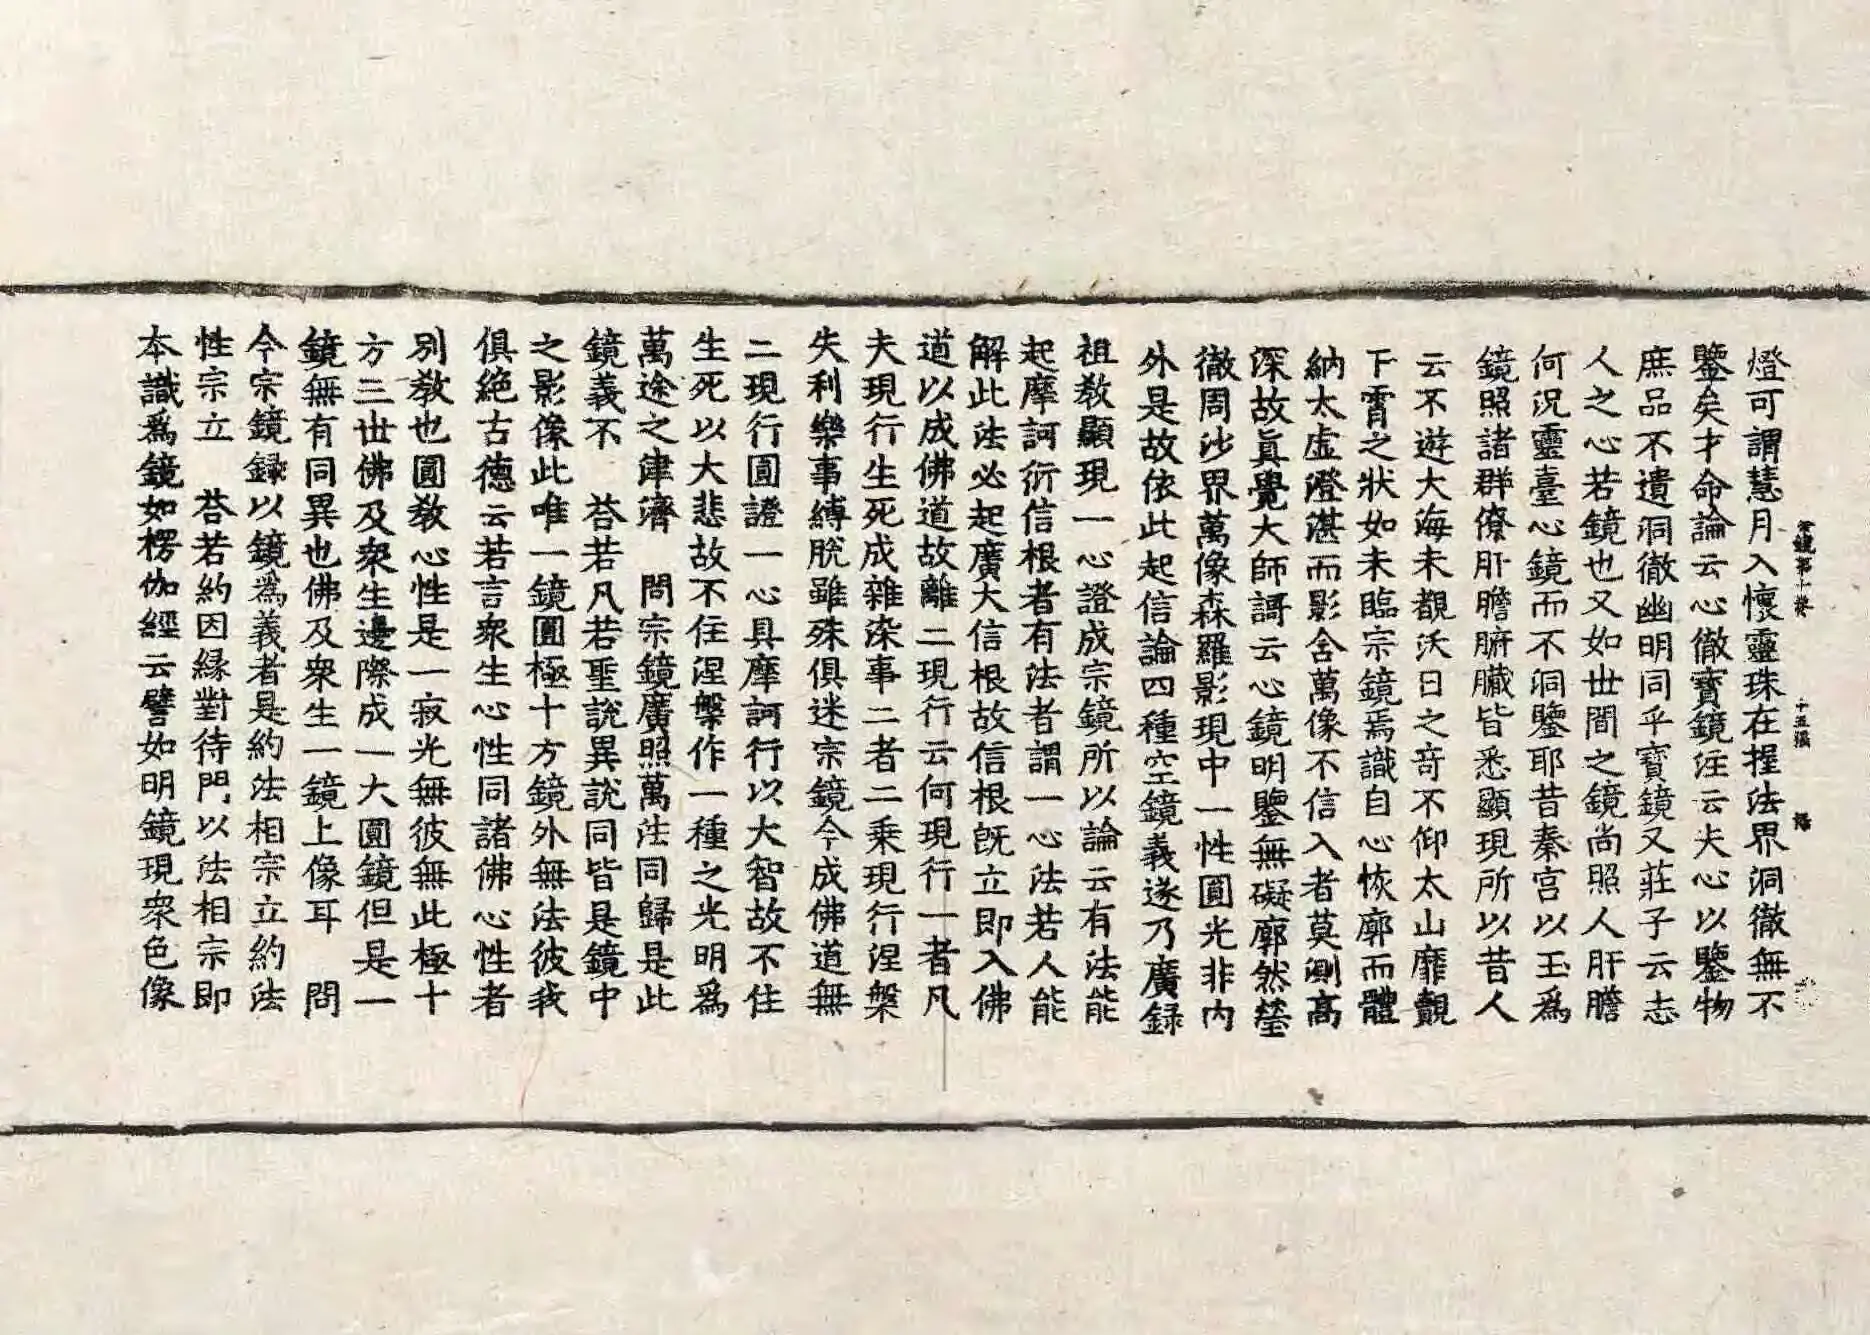 宗鏡第十卷　十五張
燈可謂慧月入懷靈珠在握法界洞徹無不
鑒矣才命論云心徹寶鏡注云夫心以鑒物
庶品不遺洞徹幽明同乎寶鏡又莊子云志
人之心若鏡也又如世間之鏡尚照人肝膽
何況靈臺心鏡而不洞鑒耶昔秦宮以玉爲
鏡照諸群僚肝膽腑臟皆悉顯現所以昔人
云不遊大海未覩沃日之奇不仰太山靡覿
下霄之狀如未臨宗鏡焉識自心恢廓而體
納太虛澄湛而影含萬像不信入者莫測高
深故眞覺大師謌云心鏡明鑒無礙廓然瑩
徹周沙界萬像森羅影現中一性圓光非內
外是故依此起信論四種空鏡義遂乃廣録
祖敎顯現一心證成宗鏡所以論云有法能
起摩訶衍信根者有法者謂一心法若人能
解此法必起廣大信根故信根旣立即入佛
道以成佛道故離二現行云何現行一者凡
夫現行生死成雜染事二者二乘現行涅槃
失利樂事縛脫雖殊俱迷宗鏡今成佛道無
二現行圓證一心具摩訶行以大智故不住
生死以大悲故不住涅槃作一種之光明爲
萬途之津濟　問宗鏡廣照萬法同歸是此
鏡義不　荅若凡若聖說異說同皆是鏡中
之影像此唯一鏡圓極十方鏡外無法彼我
俱絶古德云若言衆生心性同諸佛心性者
別敎也圓敎心性是一寂光無彼無此極十
方三世佛及衆生邊際成一大圓鏡但是一
鏡無有同異也佛及衆生一鏡上像耳　問
今宗鏡録以鏡爲義者是約法相宗立約法
性宗立　荅若約因緣對待門以法相宗即
本識爲鏡如楞伽經云譬如明鏡現衆色像